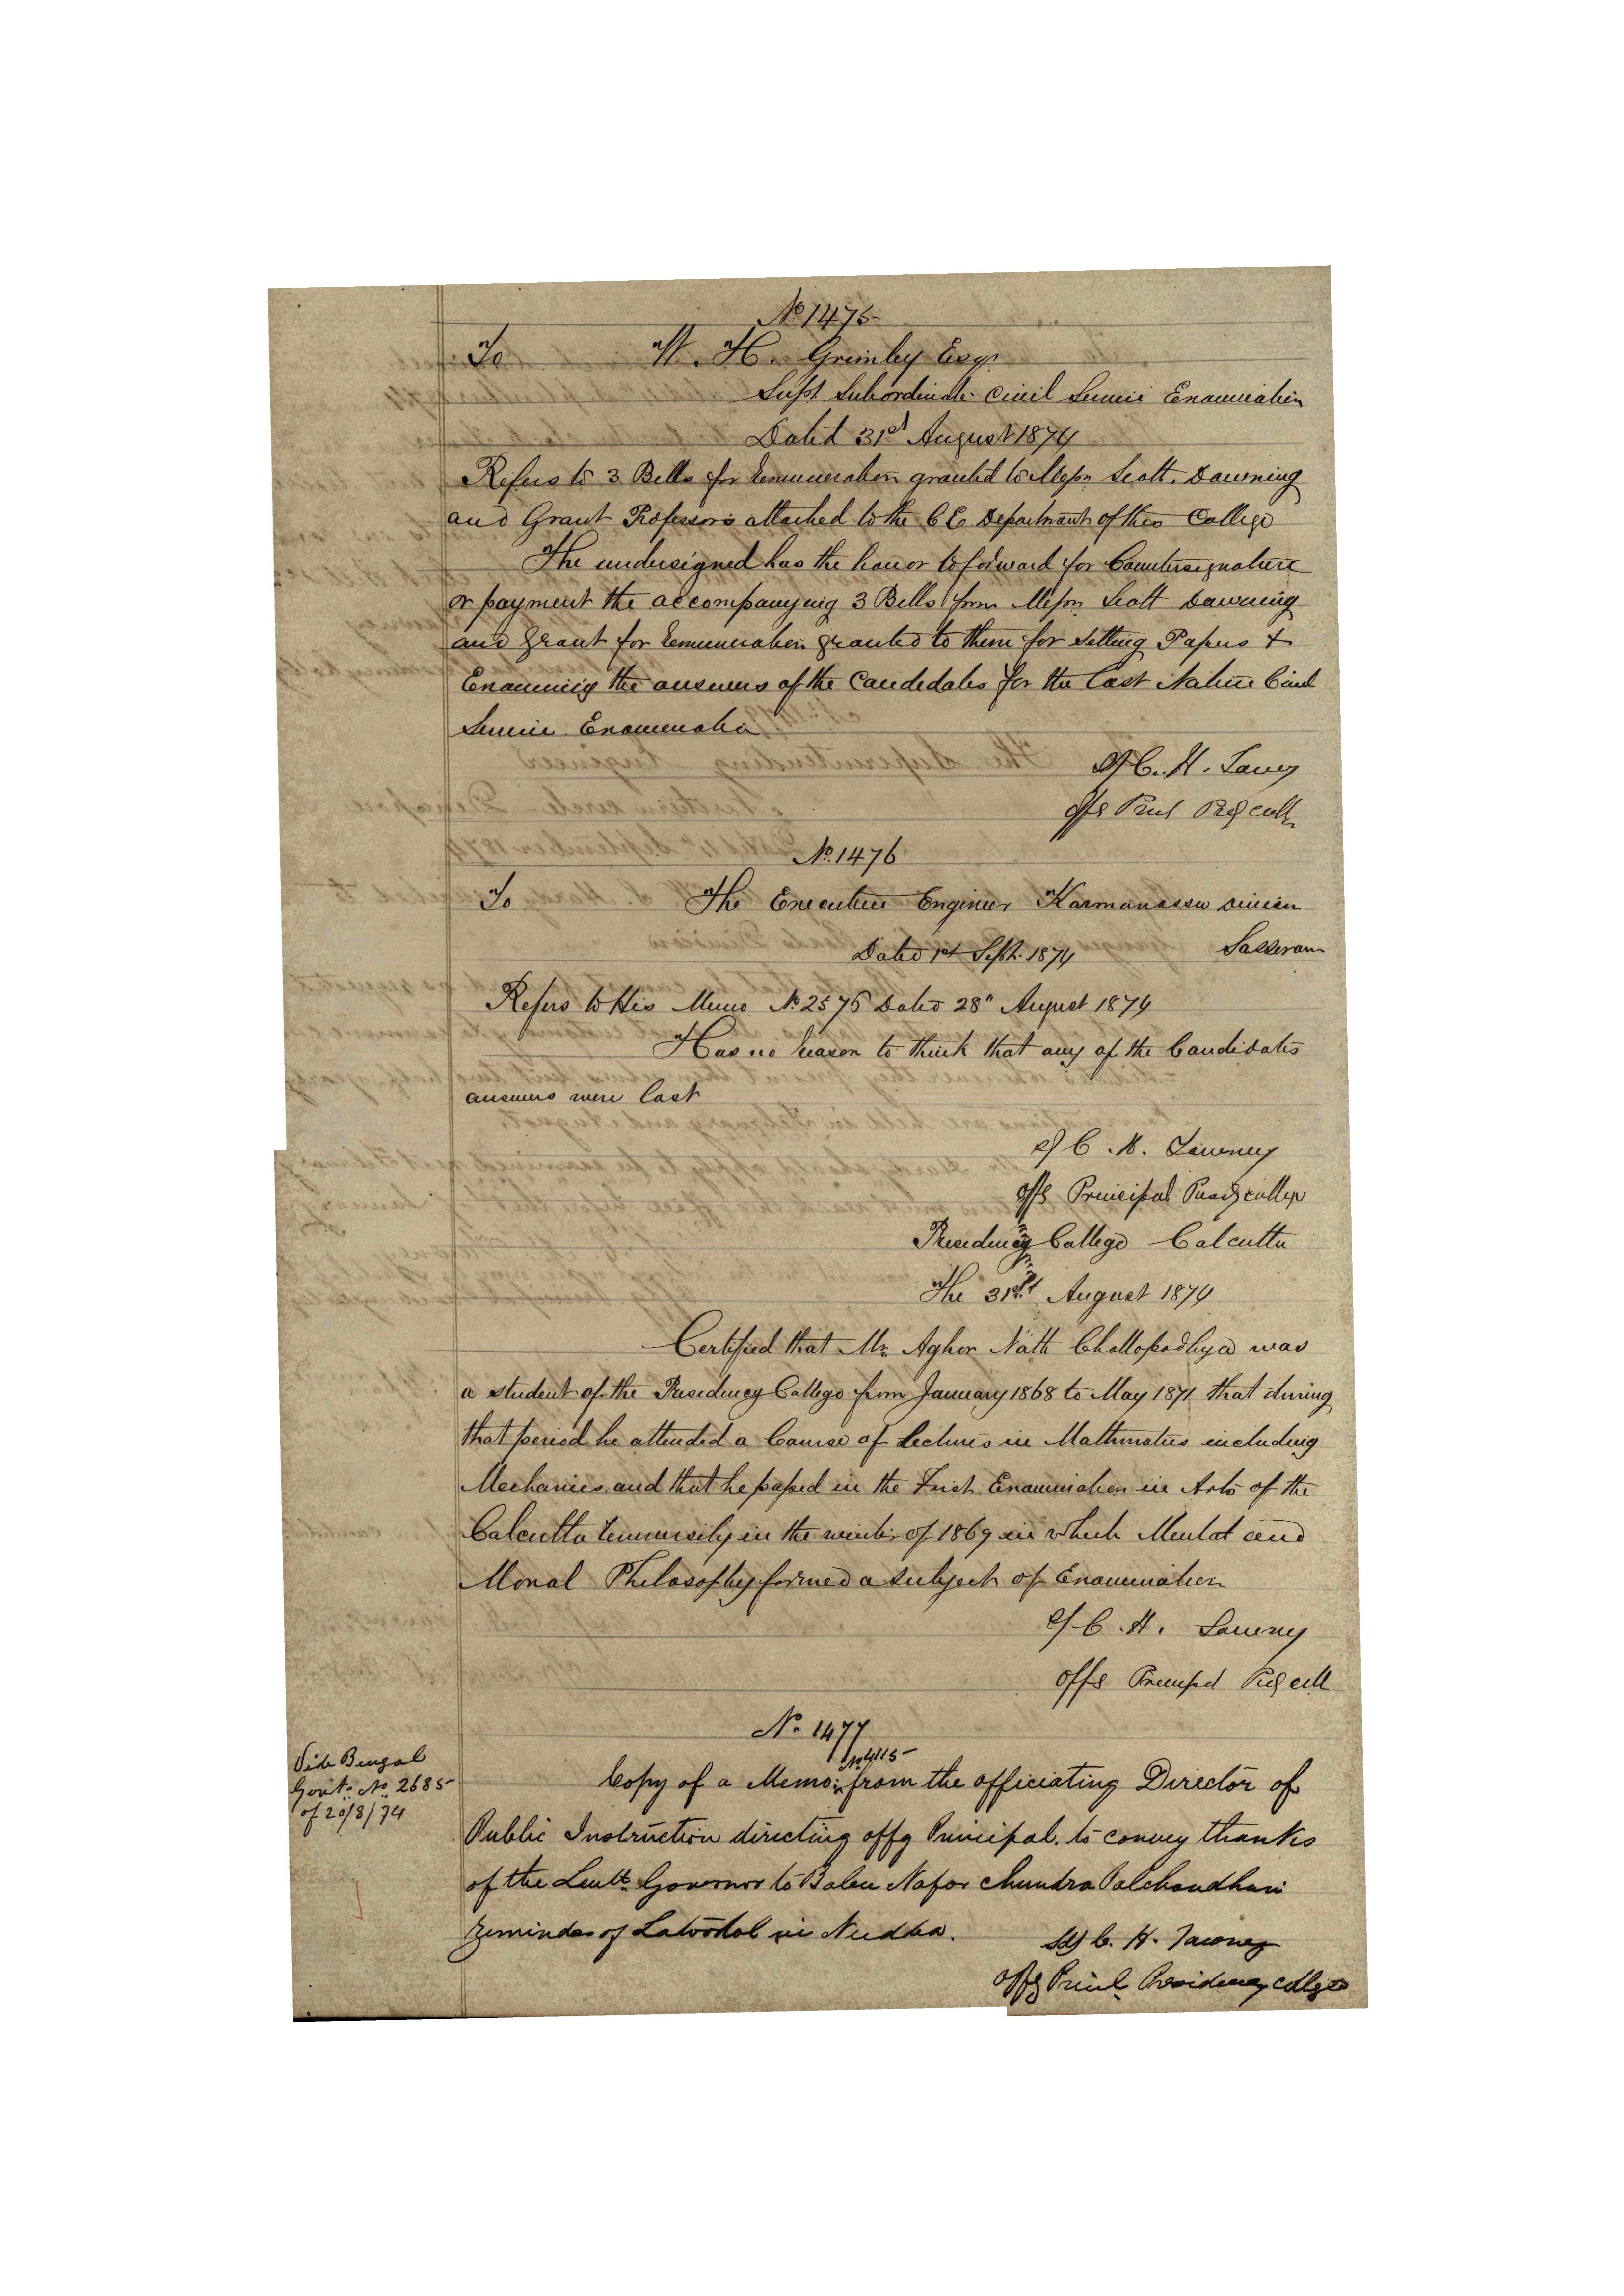 No 1475
To W. H. Grimley Esqr
Supt Subordinate Civil Service Examination
Dated 31st August 1874
Refers to 3 Bills for remuneration granted to Messrs Scott, Downing
and Grant Professors attached to the C E Department of this College
The undersigned has the honor to forward for Countersignature
or payment the accompanying 3 Bills from Messrs Scott Downing
and Grant for remuneration granted to them for setting Papers &
Examining the answers of the Candidates for the last Native Civil
Service Examination
Sd C. H. Tawney
Offg Prinl Presy Coll
No. 1476
To The Executive Engineer Karmanassa Division
Dated 1st Sept. 1874 Sasseram
Refers to His Memo No 2576 Dated 28th August 1874
Has no reason to think that any of the Candidates
answers were lost
Sd C. H. Tawney
Offg Principal Presy College
Presidency College Calcutta
The 31st August 1874
Certified that Mr. Aghor Nath Chattopadhya was
a student of the Presidency College from January 1868 to May 1871 that during
that period he attended a Course of Lectures in Mathematics including
Mechanics and that he passed in the First Examination in Arts of the
Calcutta University in the winter of 1869 in which Mental and
Moral Philosophy formed a subject of Examination
Sd C. H. Tawney
Offg Principal Presy Coll
No. 1477
No 4115
Vide Bengal
Govt. No. 2685
of 20/8/74
Copy of a Memo: from the officiating Director of
Public Instruction directing offg Principal. to convey thanks
of the Leutt. Governor to Baboo Nafor Chundra Palchoudhuri
Zemindar of in Nuddea.
Sd/ C. H. Tawney
Offg Prinl. Presidency College